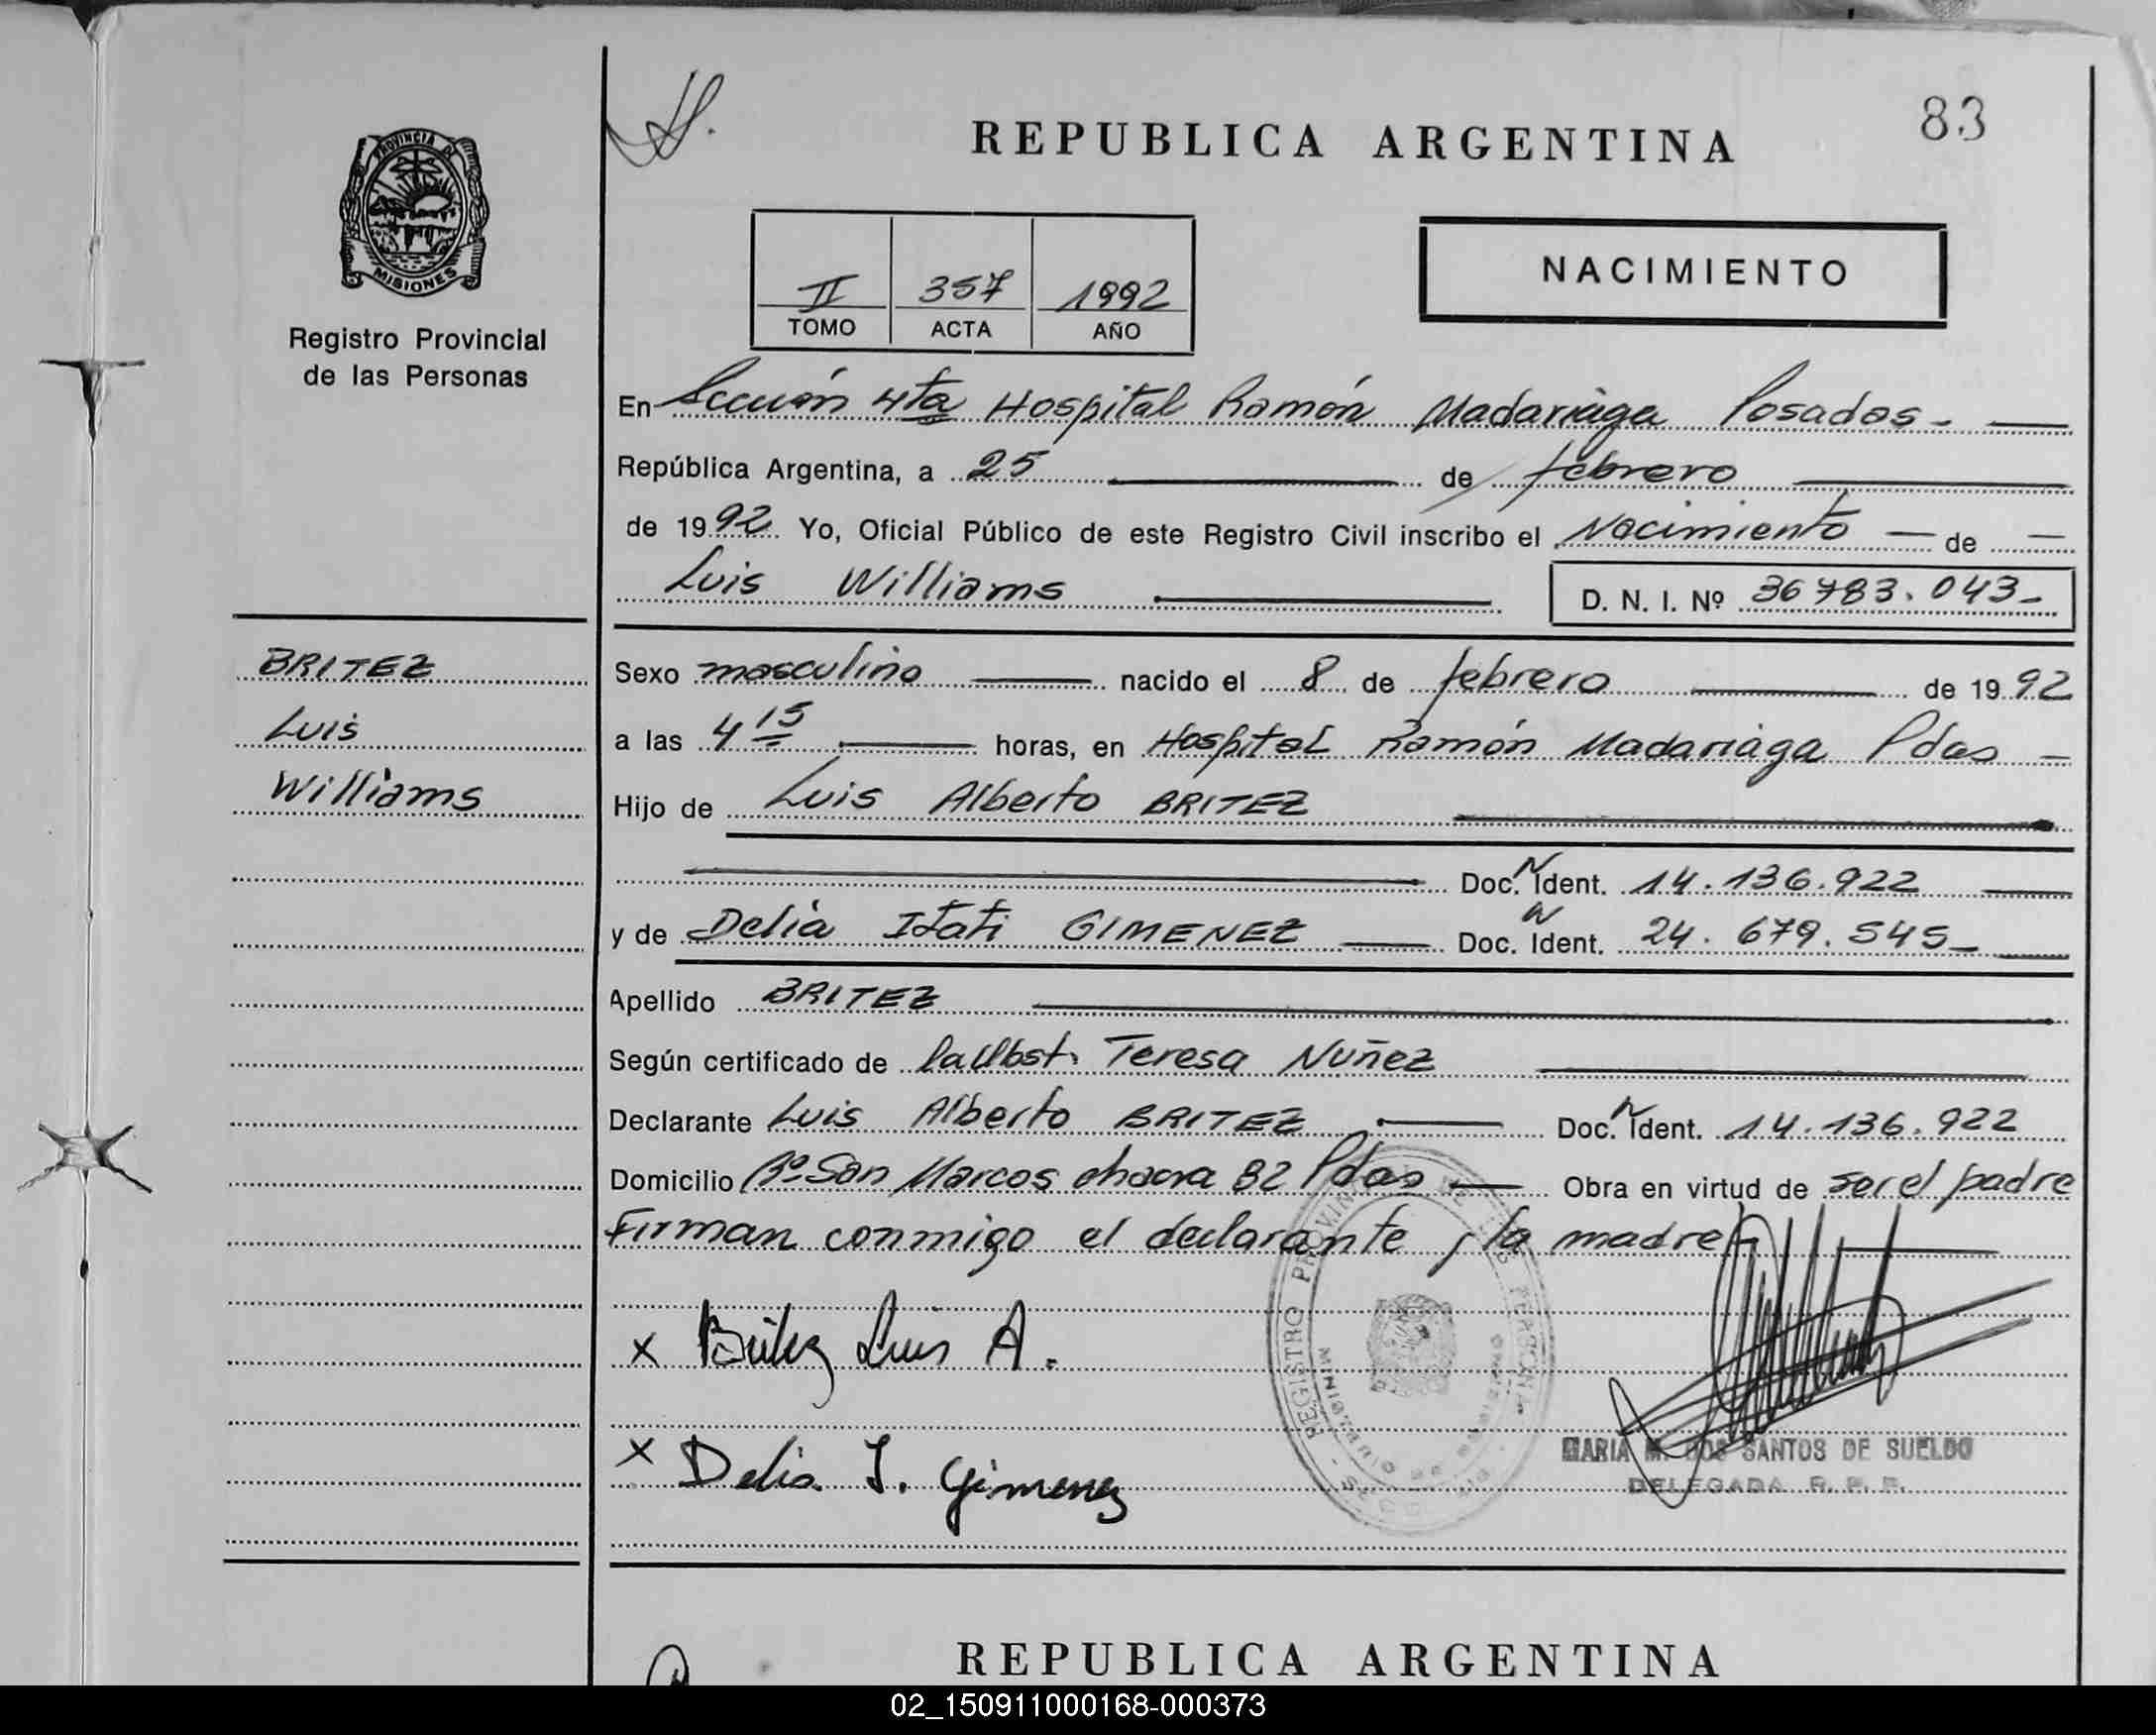 83
REPUBLICA ARGENTINA
PROVINCIA DE
MISIONES
Registro Provincial
de las Personas
II 357 1992
TOMO ACTA AÑO
NACIMIENTO
En Sección 4ta Hospital Ramón Madariaga Posadas -
República Argentina, a 25 de febrero
de 1992 Yo, Oficial Público de este Registro Civil inscribo el Nacimiento de
Luis Williams D. N. I. Nº 36783.043-
BRITEZ
Luis
Williams
Sexo masculino nacido el 8 de febrero de 1992
a las 4 15 horas, en Hospital Ramón Madariaga Pdas
Hijo de Luis Alberto BRITEZ
Doc. N Ident. 14.136.922
y de Delia Itati GIMENEZ Doc. N Ident. 24.679.545-
Apellido BRITEZ
Según certificado de la Obst. Teresa Nuñez
Declarante Luis Alberto BRITEZ Doc. N Ident. 14.136.922
Domicilio Bº San Marcos chacra 82 Pdas Obra en virtud de ser el padre
Firman conmigo el declarante y la madre
x Britez Luis A.
x Delia I. Gimenez
REGISTRO PROVINCIAL DE LAS PERSONAS
MARIA M. DOS SANTOS DE SUELDO
DELEGADA R. P. P.
REPUBLICA ARGENTINA
02_150911000168-000373